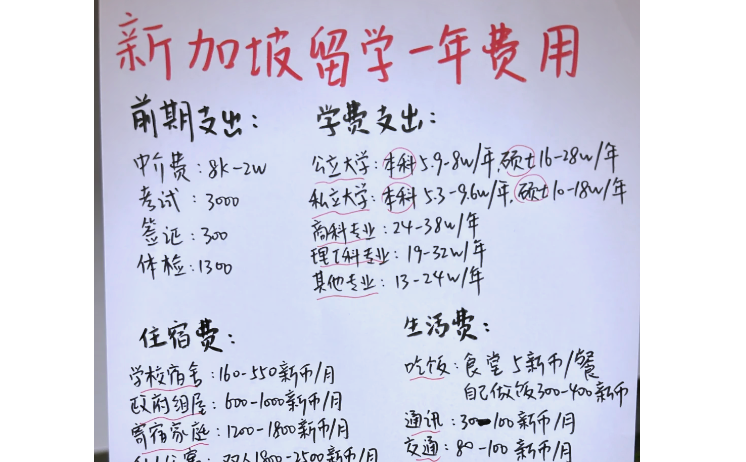 新加坡留学一年费用
前期支出:
中介费:8K-2w
考试:3000
签证:300
体检:1300
学费支出:
公立大学:本科5.9-8w/年,硕士16-28w/年
私立大学:本科5.3-9.6w/年,硕士10-18w/年
商科专业:24-38w/年
理工科专业:19-32w/年
其他专业:13-24w/年
住宿费:
学校宿舍:160-550新币/月
政府组屋:600-1000新币/月
寄宿家庭:1200-1800新币/月
1800-2500新币/月
生活费:
吃饭:食堂5新币/餐
自己做饭300-400新币
通讯:30-100新币/月
交通:80-100新币/月